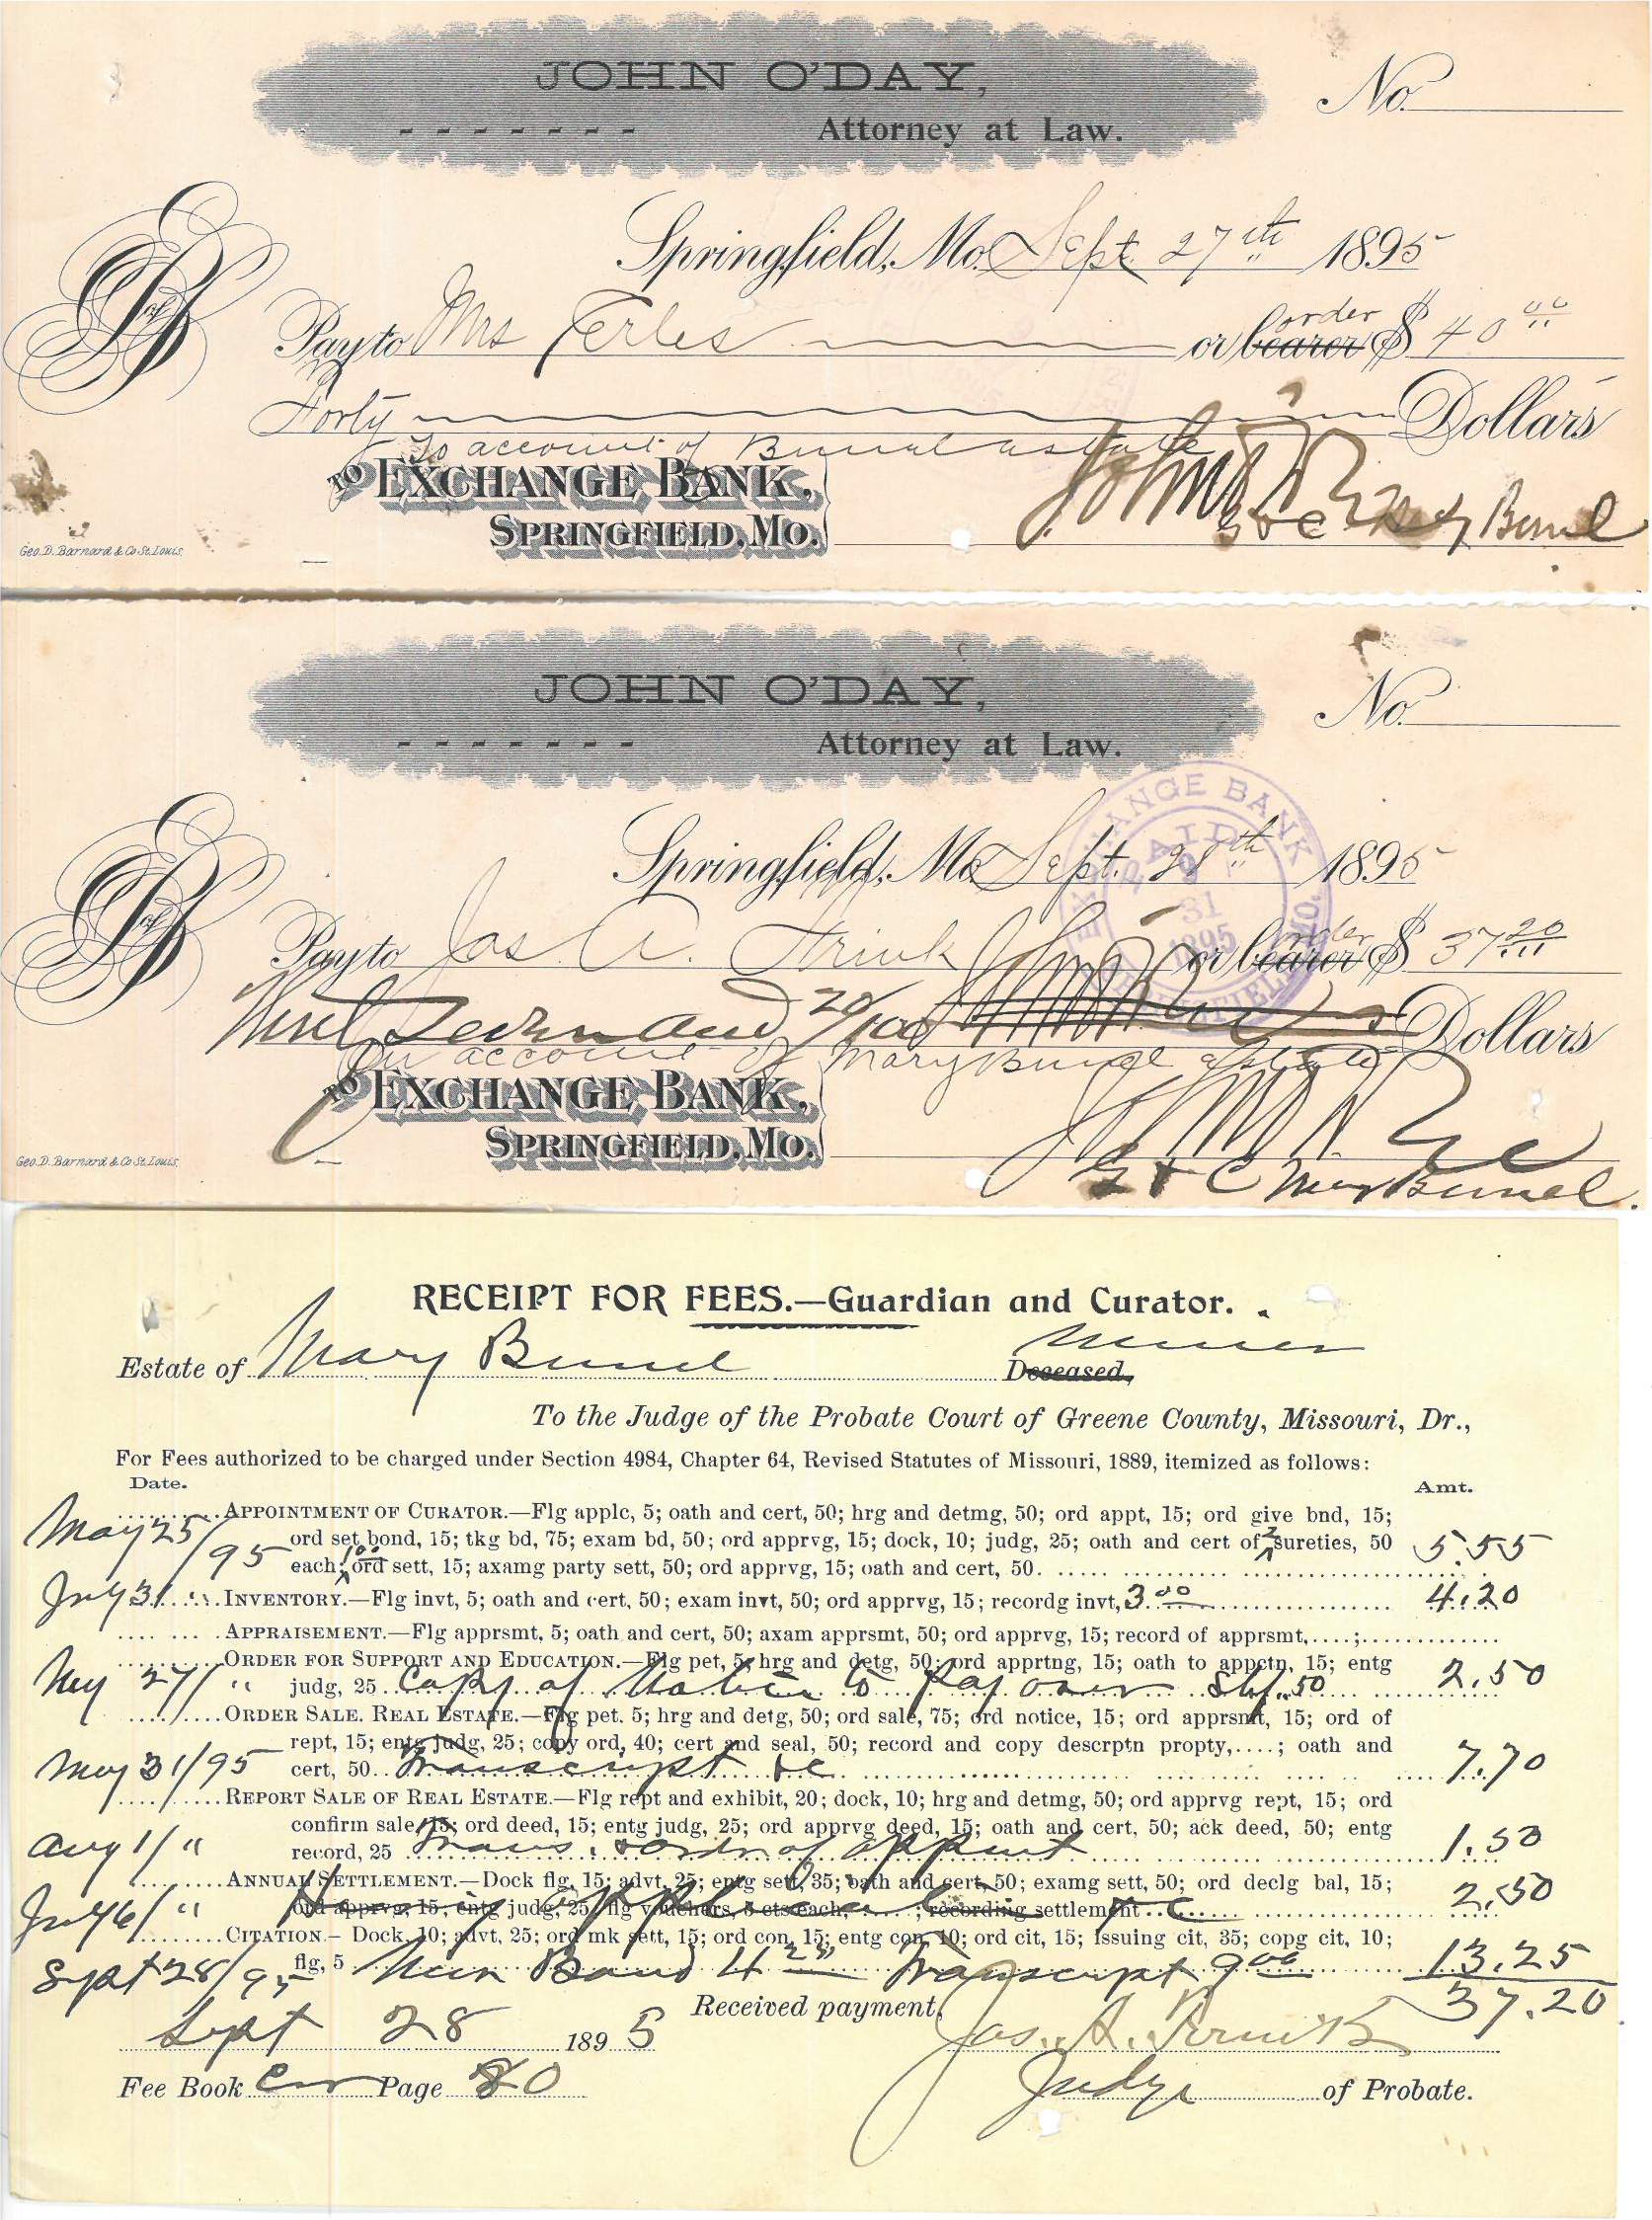 JOHN O'DAY,
Attorney at Law.
No.
Springfield, Mo. Sept 27th 1895
Pay to Mrs Ferles or bearer order $ 40 00
Forty Dollars
To account of Bunel estate
TO EXCHANGE BANK,
SPRINGFIELD, MO.
John O'Day
G & C Mary Bunel
Geo. D. Barnard & Co St. Louis.
JOHN O'DAY,
Attorney at Law.
No.
EXCHANGE BANK
PAID
31
1895
SPRINGFIELD, MO.
Springfield, Mo Sept. 28th 1895
Pay to Jas A. or bearer order $ 37 20
and 20/100 Dollars
On account of Mary Bunel estate
TO EXCHANGE BANK,
SPRINGFIELD, MO.
G & C Mary Bunel.
Geo. D. Barnard & Co St. Louis.
RECEIPT FOR FEES.—Guardian and Curator.
Estate of Mary Bunel Minor Deceased,
To the Judge of the Probate Court of Greene County, Missouri, Dr.,
For Fees authorized to be charged under Section 4984, Chapter 64, Revised Statutes of Missouri, 1889, itemized as follows:
Date. Amt.
May 25/95 APPOINTMENT OF CURATOR.—Flg applc, 5; oath and cert, 50; hrg and detmg, 50; ord appt, 15; ord give bnd, 15;
ord set bond, 15; tkg bd, 75; exam bd, 50; ord apprvg, 15; dock, 10; judg, 25; oath and cert of 2 sureties, 50
each; 100 ord sett, 15; axamg party sett, 50; ord apprvg, 15; oath and cert, 50. 5.55
July 31 " INVENTORY.—Flg invt, 5; oath and cert, 50; exam invt, 50; ord apprvg, 15; recordg invt, 3.00 4.20
APPRAISEMENT.—Flg apprsmt, 5; oath and cert, 50; axam apprsmt, 50; ord apprvg, 15; record of apprsmt,....;
May 27/ " ORDER FOR SUPPORT AND EDUCATION.—Flg pet, 5; hrg and detg, 50; ord apprtng, 15; oath to appctn, 15; entg
judg, 25 Copy of Notice to Pay over Shf. 50 2.50
ORDER SALE. REAL ESTATE.—Flg pet. 5; hrg and detg, 50; ord sale, 75; ord notice, 15; ord apprsmt, 15; ord of
rept, 15; entg judg, 25; copy ord, 40; cert and seal, 50; record and copy descrptn propty,....; oath and
May 31/95 cert, 50. Transcript &c 7.70
REPORT SALE OF REAL ESTATE.—Flg rept and exhibit, 20; dock, 10; hrg and detmg, 50; ord apprvg rept, 15; ord
confirm sale, 15; ord deed, 15; entg judg, 25; ord apprvg deed, 15; oath and cert, 50; ack deed, 50; entg
Aug 1/ " record, 25 Trans. & order of appmt 1.50
ANNUAL SETTLEMENT.—Dock flg, 15; advt, 25; entg sett, 35; oath and cert, 50; examg sett, 50; ord declg bal, 15;
July 6/ " ord apprvg, 15; entg judg, 25; flg vouchers, 5 cts each, ....; recording settlement Hearing application &c 2.50
CITATION.— Dock, 10; advt, 25; ord mk sett, 15; ord con, 15; entg con, 10; ord cit, 15; issuing cit, 35; copg cit, 10;
Sept 28/95 flg, 5 New Bond 4 25 Transcript 9 00 13.25
37.20
Received payment,
Sept 28 1895 Jas. A.
Fee Book Page 80 Judge of Probate.